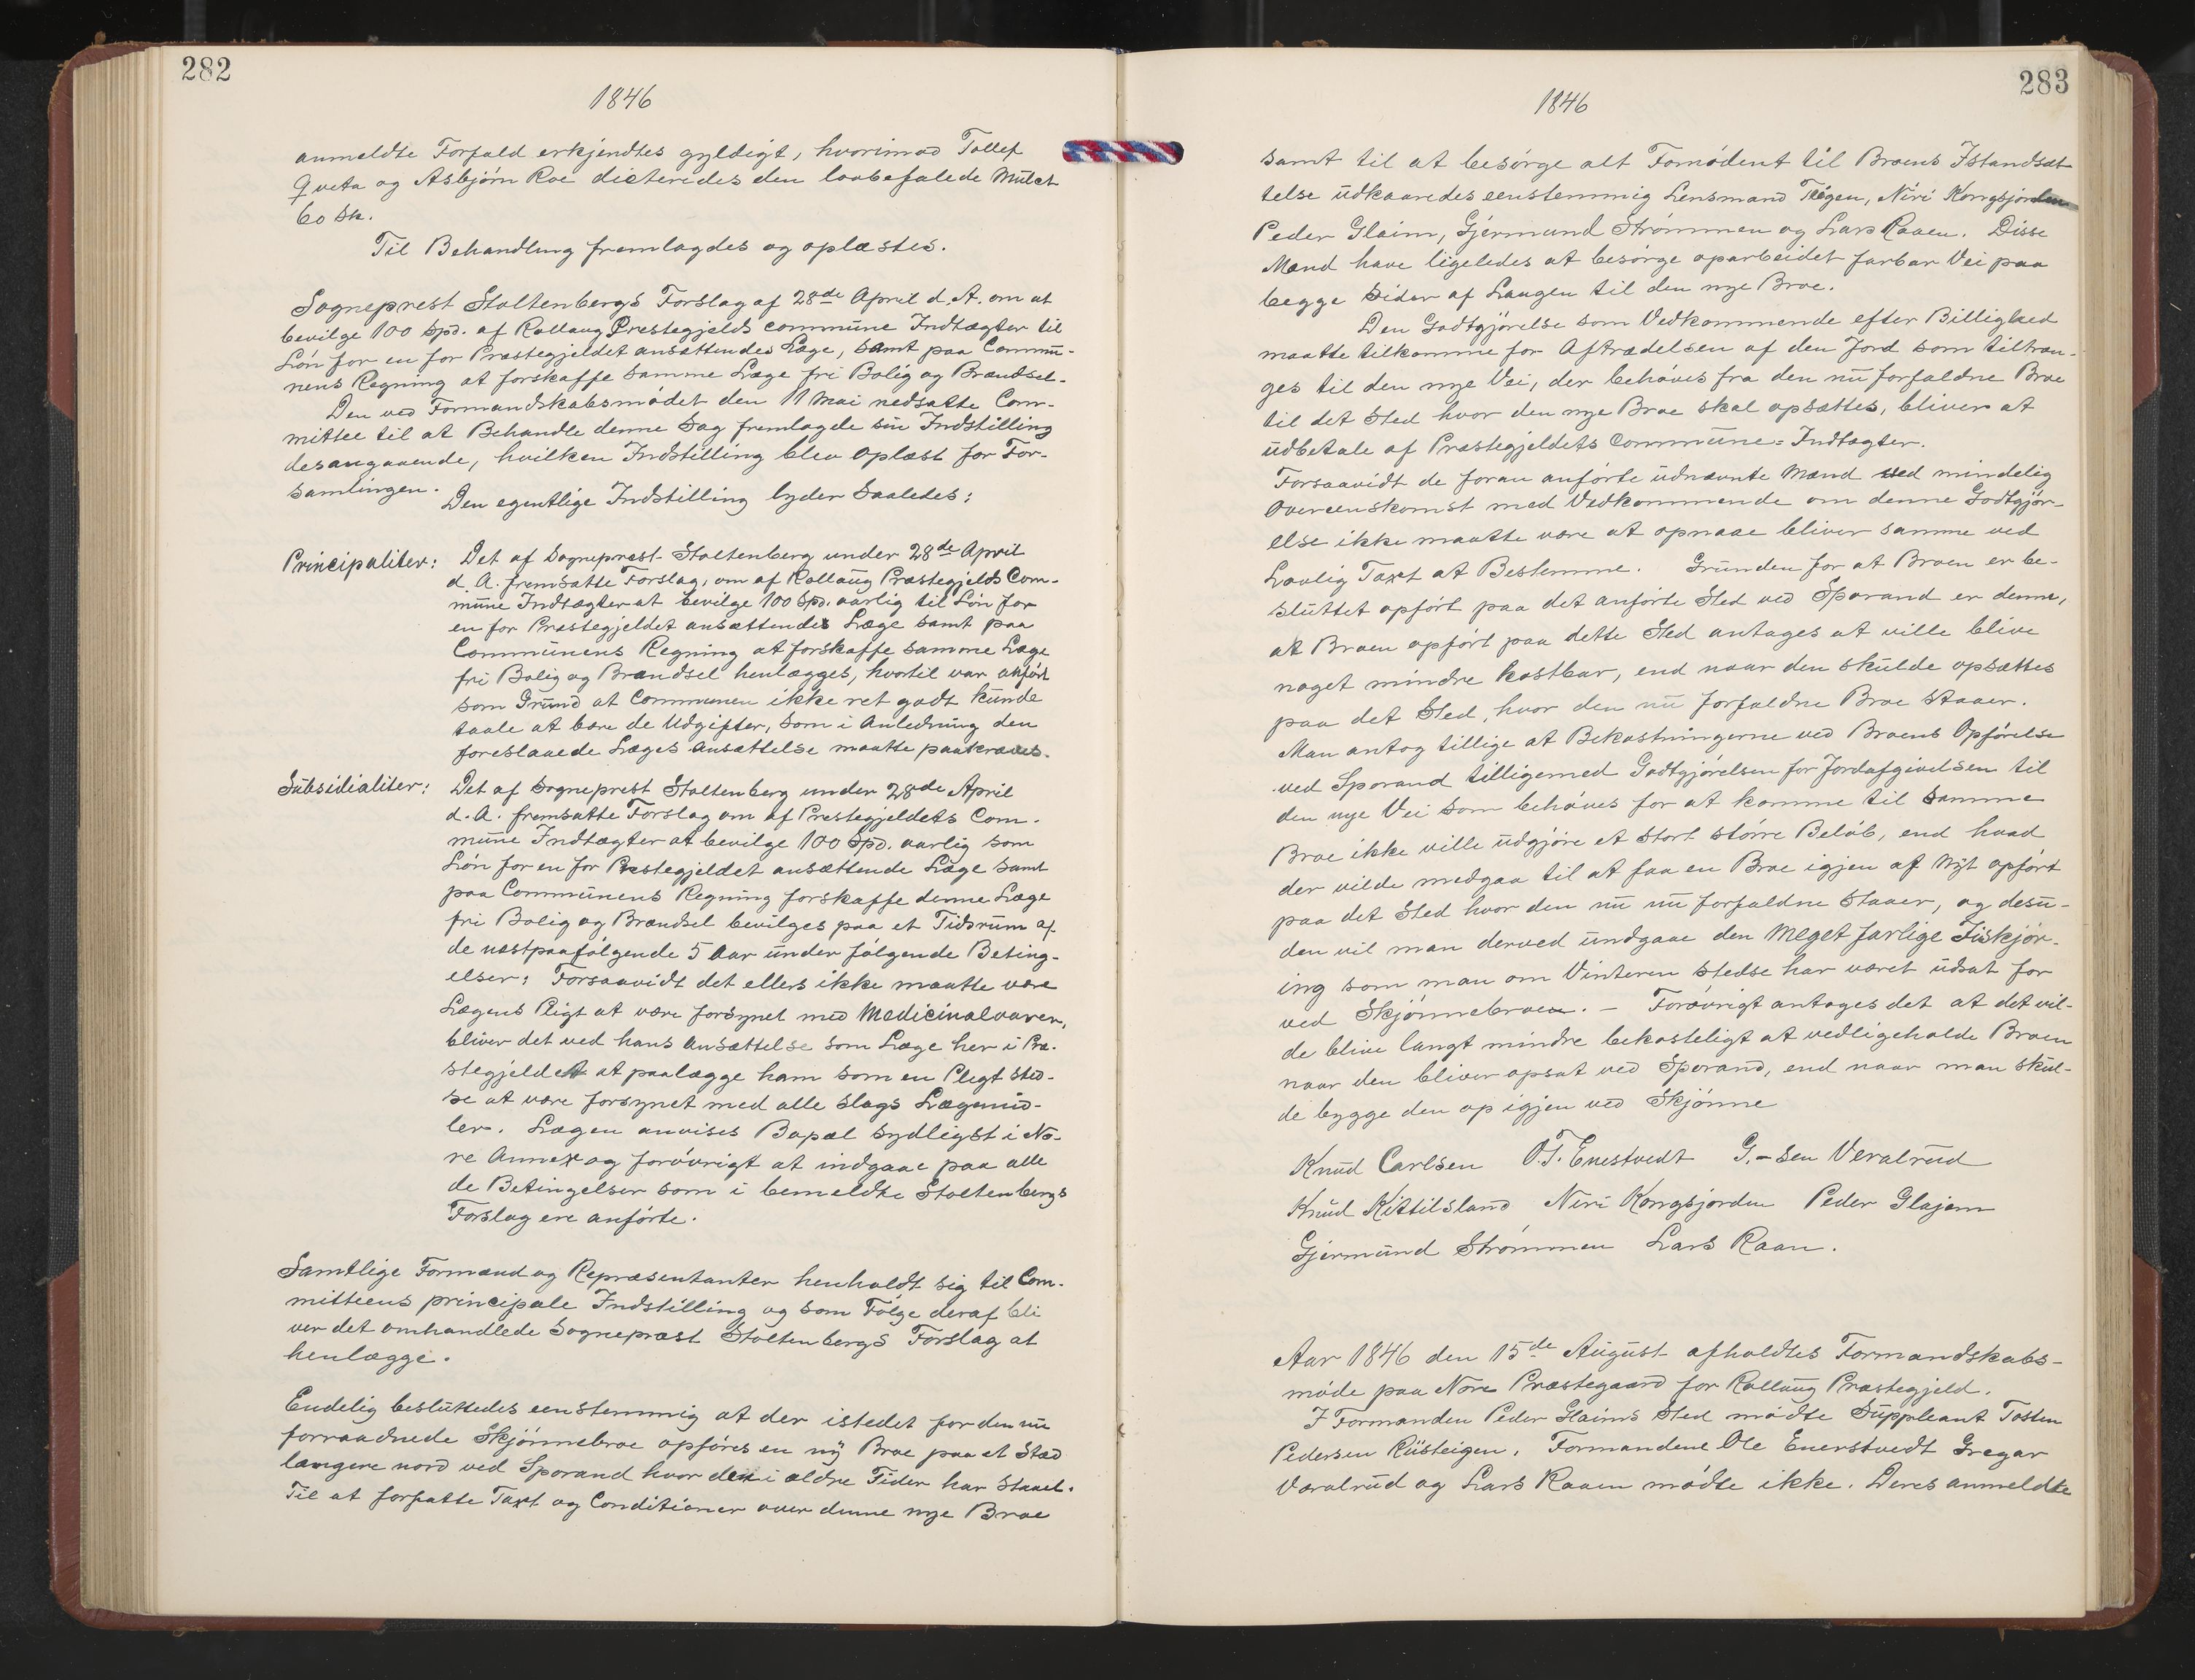 282
1846
anmeldte Forfald erkjendtes gyldigt, hvorimod Tollef
Qveta og Asbjörn Roe dicteredes den lovbefalede Mulct
60 Sk.
Til Behandling fremlagdes og oplæstes.
Sogneprest Stoltenbergs Forslag af 28de April d. A. om at
bevilge 100 Spd. af Rollaug Prestegjelds commune Indtægter til
Lön for en for Præstegjeldet ansættendes Læge, samt paa Commu-
nens Regning at forskaffe samme Læge fri Bolig og Brændsel.
Den ved Formandskabsmödet den 11 Mai nedsatte Com-
mittee til at Behandle denne Sag fremlagde sin Indstilling
desangaaende, hvilken Indstilling blev oplæst for For-
samlingen.
Den egentlige Indstilling lyder saaledes:
Principaliter: Det af Sognepræst Stoltenberg under 28de April
d. A. fremsatte Forslag, om af Rollaug Præstegjelds Com-
mune Indtægter at bevilge 100 Spd. aarlig til Lön for
en for Præstegjeldet ansættendes Læge samt paa
Communens Regning at forskaffe samme Læge
fri Bolig og Brændsel henlægges, hvortil var anfört
som Grund at Communen ikke ret godt kunde
taale at bære de Udgifter, som i Anledning den
foreslaaede Læges Ansættelse maatte paakræves.
Subsidialiter: Det af Sogneprest Stoltenberg under 28de April
d. A. fremsatte Forslag om af Prestegjeldets Com-
mune Indtægter at bevilge 100 Spd. aarlig som
Lön for en for Prestegjeldet ansættende Læge samt
paa Communens Regning forskaffe denne Læge
fri Bolig og Brændsel bevilges paa et Tidsrum af
de næstpaafölgende 5 Aar under fölgende Beting-
elser: Forsaavidt det ellers ikke maatte være
Lægens Pligt at være forsynet med Medicinalvarer,
bliver det ved hans Ansættelse som Læge her i Præ-
stegjeldet at paalægge ham som en Pligt sted-
se at være forsynet med alle slags Lægemid-
ler. Lægen anvises Bopæl sydligst i No-
re Annex og forövrigt at indgaae paa alle
de Betingelser som i bemeldte Stoltenbergs
Forslag ere anförte.
Samtlige Formænd og Repræsentanter henholdt sig til Com-
mitteens principale Indstilling og som Fölge deraf bli
ver det omhandlede Sognepræst Stoltenbergs Forslag at
henlægge.
Endelig besluttedes eenstemmig at der istedet for den nu
forraadnede Skjönnebroe opföres en ny Broe paa et Stæd
længere nord ved Sporand hvor den i ældre Tider har staaet.
Til at forfatte Taxt og Conditioner over denne nye Broe
283
1846
samt til at besörge alt Fornödent til Broens Istandsæt
telse udkaaredes eenstemmig Lensmand Teigen, Niri Kongsjorden
Peder Glaim, Gjermund Strömmen og Lars Raaen. Disse
Mænd have ligeledes at besörge oparbeidet farbar Vei paa
begge Sider af Laagen til den nye Broe.
Den Godtgjörelse som Vedkommende efter Billighed
maatte tilkomme for Aftrædelsen af den Jord som tiltræn-
ges til den nye Vei, der behöves fra den nu forfaldne Broe
til det Sted hvor den nye Broe skal opsættes, bliver at
udbetale af Præstegjeldets Commune-Indtægter.
Forsaavidt de foran anförte udnævnte Mænd ved mindelig
Overeenskomst med Vedkommende om denne Godtgjör-
else ikke maatte være at opnaae bliver samme ved
Lovlig Taxt at Bestemme. Grunden for at Broen er be-
sluttet opfört paa det anförte Sted ved Sporand er denne,
at Broen opfört paa dette Sted antages at ville blive
noget mindre kostbar, end naar den skulde opsættes
paa det Sted, hvor den nu forfaldne Broe staaer.
Man antog tillige at Bekostningerne ved Broens Opförelse
ved Sporand tilligemed Godtgjörelsen for Jordafgivelsen til
den nye Vei som behöves for at komme til samme
Broe ikke ville udgjöre et stort större Belöb, end hvad
der vilde medgaa til at faa en Broe igjen af Nyt opfört
paa det Sted hvor den nu nu forfaldne staaer, og desu-
den vil man derved undgaae den meget farlige Fiskjör-
ing som man om Vinteren stedse har været udsat for
ved Skjönnebroen. - Forövrigt antages det at det vil-
de blive langt mindre bekosteligt at vedligeholde Broen
naar den bliver opsat ved Sporand, end naar man skul-
de bygge den op igjen ved Skjönne
Knud Carlsen O. T. Enestvedt G. - sen Veralrud
Knud Kittilsland Niri Kongsjorden Peder Glajem
Gjermund Strömmen Lars Raan.
Aar 1846 den 15de August afholdtes Formandskabs-
möde paa Nore Præstegaard for Rollaug Præstegjeld.
I Formanden Peder Glaims Sted mödte Suppleant Tosten
Pedersen Rusteigen. Formandene Ole Enerstvedt Gregar
Væralrud og Lars Raaen mödte ikke. Deres anmeldte